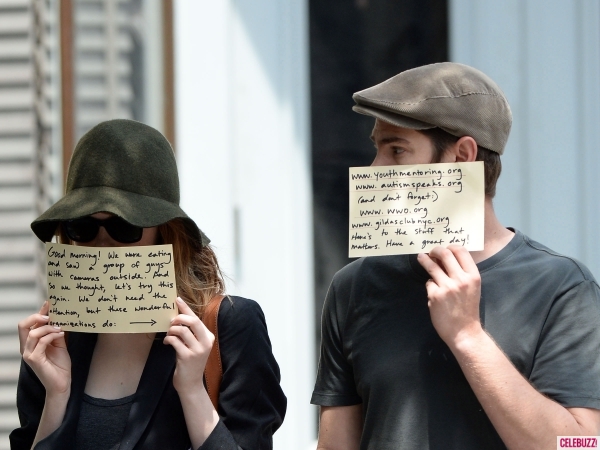 Good morning! We were eating
and saw a group of guys
with cameras outside. And
so we thought, let's try this
again. We don't need the
attention, but these wonderful
organizations do: →
www.youthmentoring.org
www.autismspeaks.org
(and don't forget:)
www.wwo.org
www.gildasclubnyc.org
Here's to the stuff that
matters. Have a great day!
CELEBUZZ!